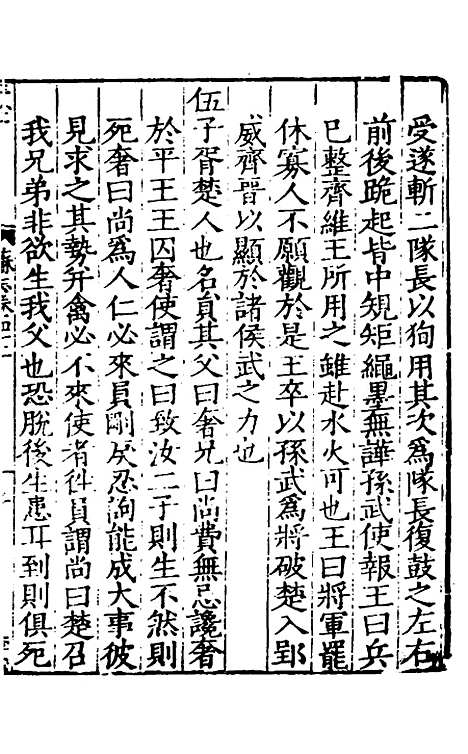 受遂斬二隊長以狥用其次為隊長復鼓之左右
前後跪起皆中規矩繩墨無譁孫武使報王曰兵
已整齊維王所用之雖赴水火可也王曰將軍罷
休寡人不願觀於是王卒以孫武為將破楚入郢
威齊晉以顯於諸侯武之力也
伍子胥楚人也名員其父曰奢兄曰尚費無忌讒奢
於平王王囚奢使謂之曰致汝二子則生不然則
死奢曰尚為人仁必來員剛戾忍訽能成大事彼
見求之其勢并禽必不來使者徃員謂尚曰楚召
我兄弟非欲生我父也恐脫後生患耳到則俱死